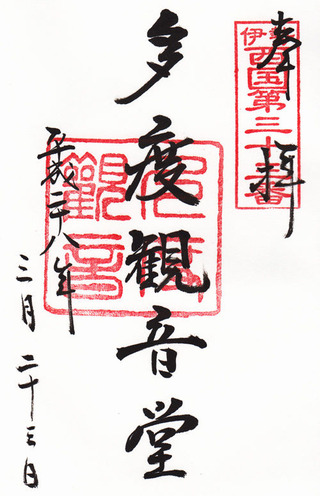 奉拝
伊勢西国第三十三番
多度観音堂
平成二十八年
三月二十三日